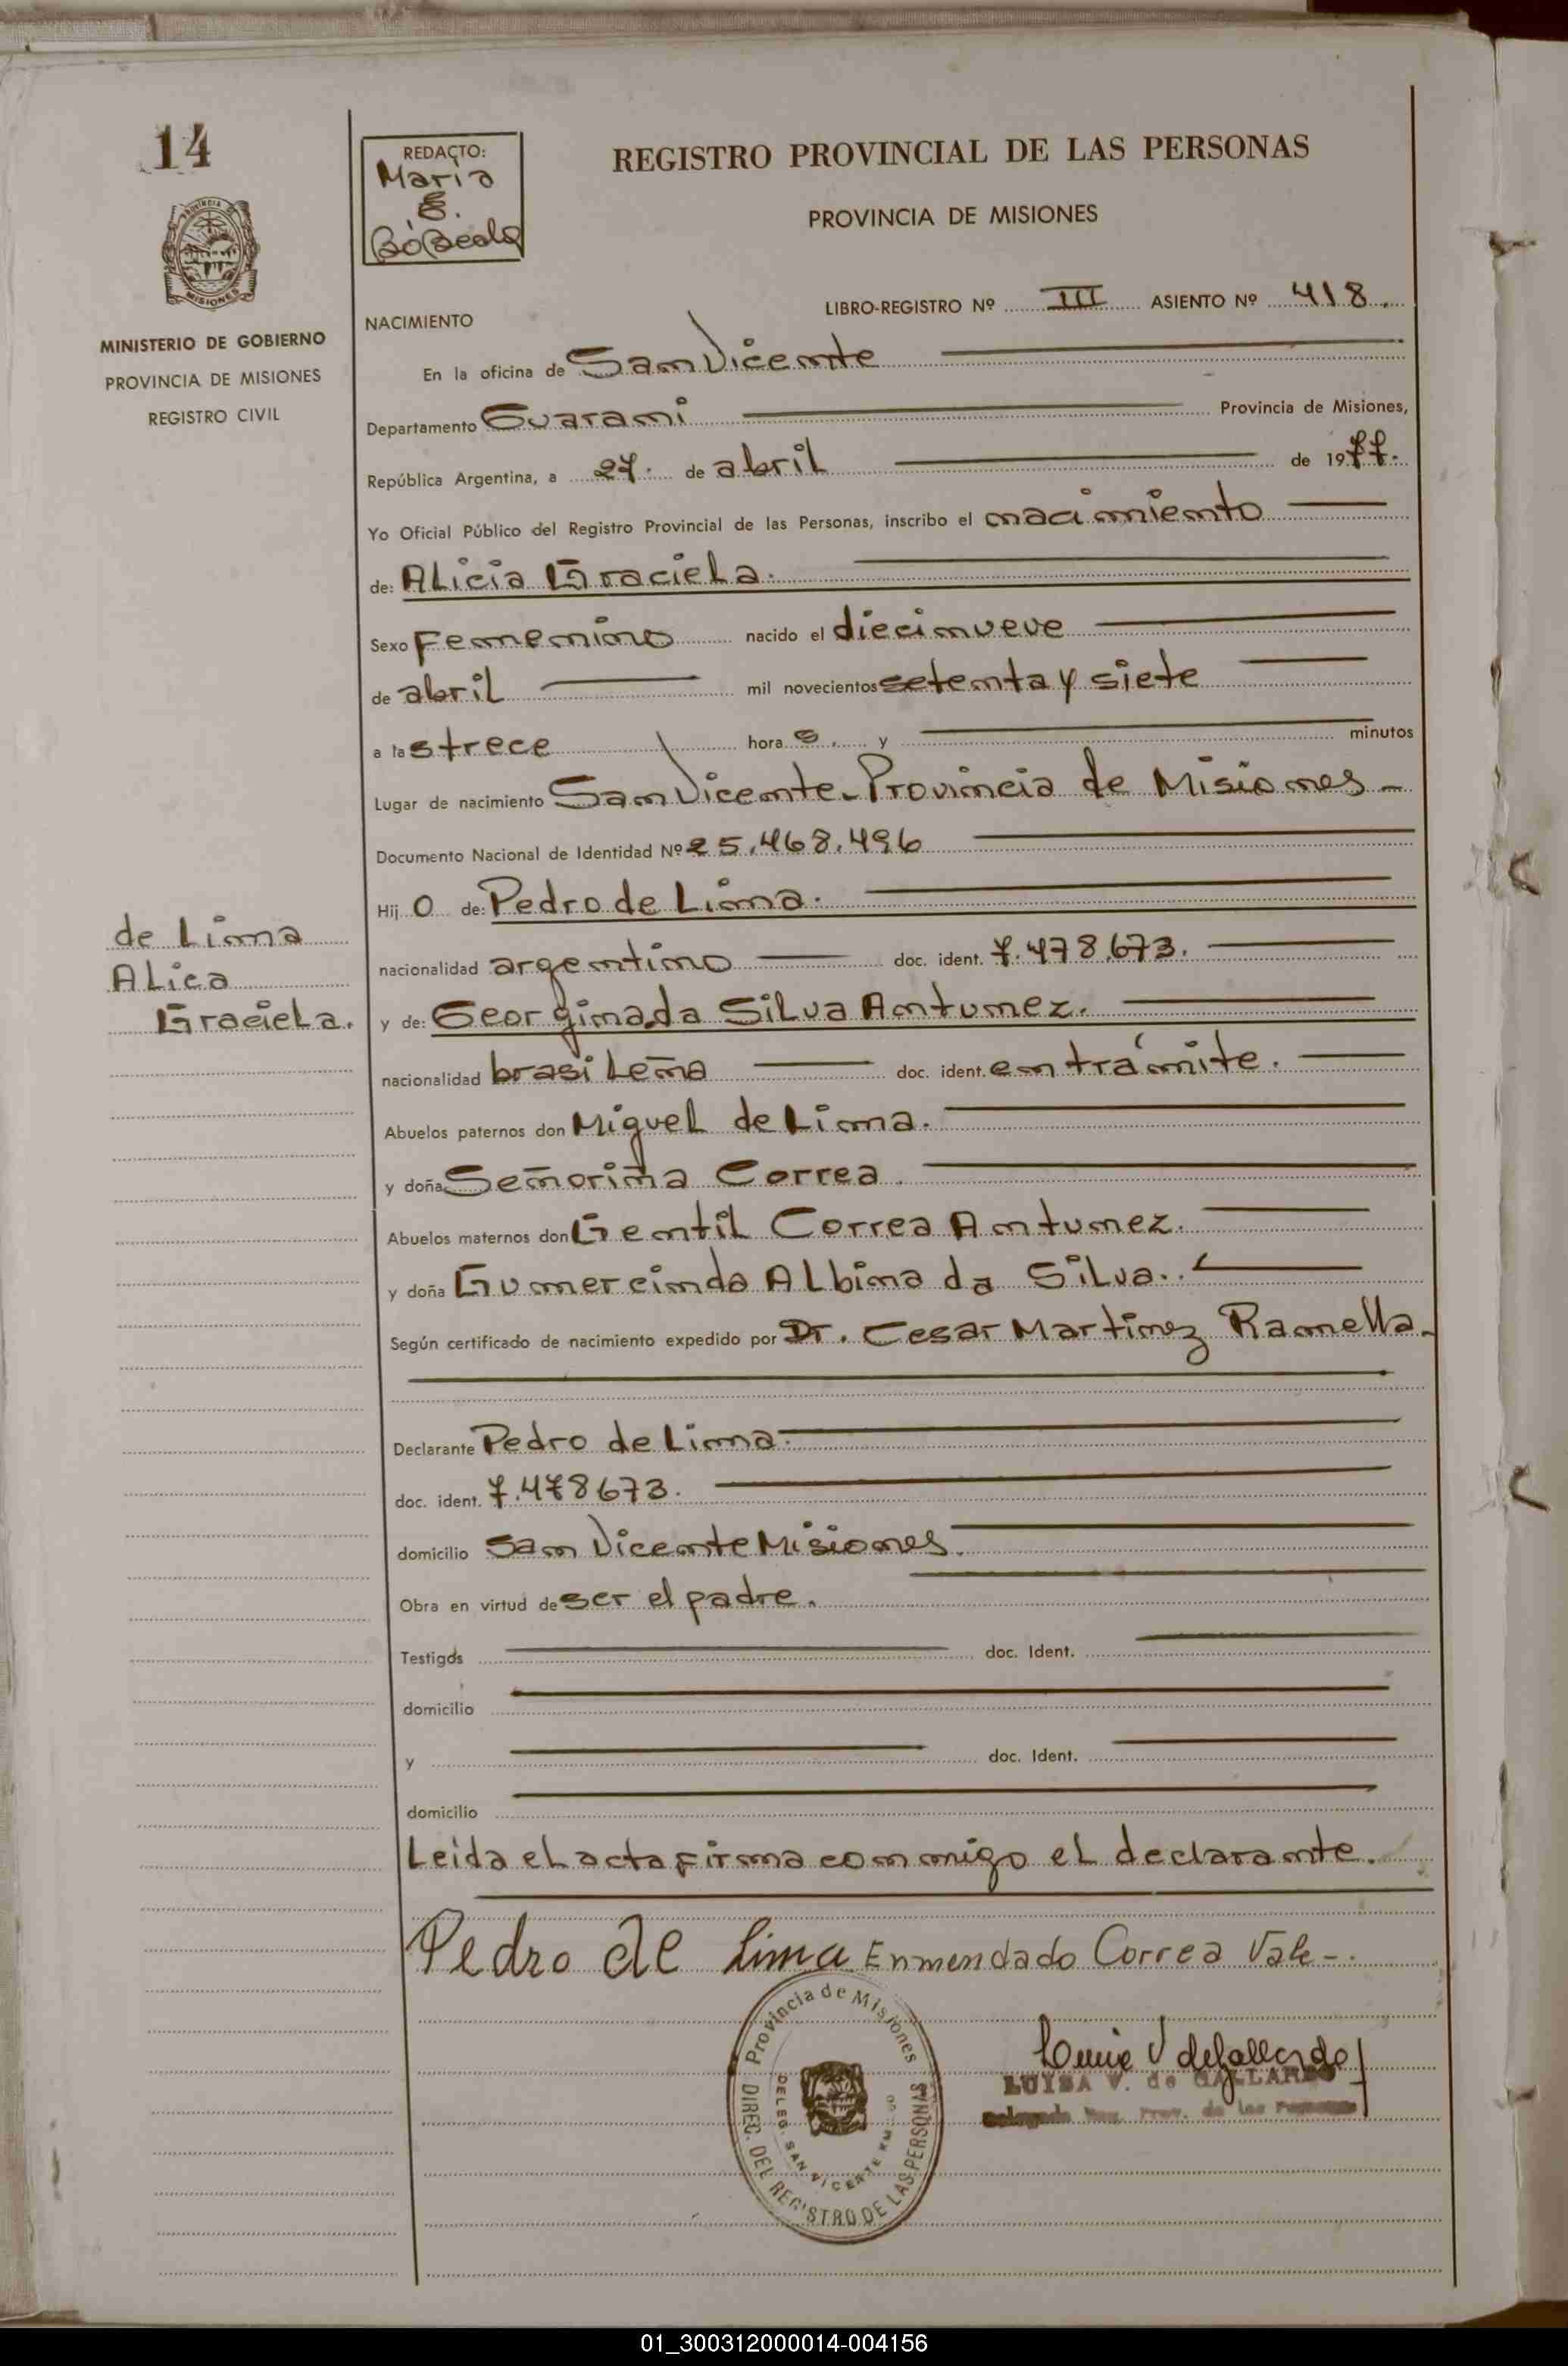 14
MISIONES
MINISTERIO DE GOBIERNO
PROVINCIA DE MISIONES
REGISTRO CIVIL
REDACTO:
Maria
E.
REGISTRO PROVINCIAL DE LAS PERSONAS
PROVINCIA DE MISIONES
LIBRO-REGISTRO Nº III ASIENTO Nº 418.
NACIMIENTO
En la oficina de San Vicente
Departamento Guarani Provincia de Misiones,
República Argentina, a 27. de abril de 1977.
Yo Oficial Público del Registro Provincial de las Personas, inscribo el nacimiento
de: Alicia Graciela.
Sexo Femenino nacido el diecinueve
de abril mil novecientos setenta y siete
a las trece hora s. y minutos
Lugar de nacimiento San Vicente-Provincia de Misiones-
Documento Nacional de Identidad Nº 25.468.496
Hij o de: Pedro de Lima.
de Lima
Alica
Graciela.
nacionalidad argentino doc. ident. 7.478.673.
y de: Georgina da Silva Antunez.
nacionalidad brasileña doc. ident. en trámite.
Abuelos paternos don Miguel de Lima.
y doña Señoriña Correa.
Abuelos maternos don Gentil Correa Antunez.
y doña Gumercinda Albina da Silva.
Según certificado de nacimiento expedido por Dr. Cesar Martinez Ramella-
Declarante Pedro de Lima.
doc. ident. 7.478673.
domicilio San Vicente Misiones.
Obra en virtud de ser el padre.
Testigos doc. Ident.
domicilio
y doc. Ident.
domicilio
Leida el acta firma conmigo el declarante.
Pedro de Lima Enmendado Correa Vale-.
Provincia de Misiones
DIREC. DEL REGISTRO DE LAS PERSONAS
DELEG. SAN VICENTE KM.
Luisa V de Gallardo
LUISA V. de GALLARDO
Delegada Reg. Prov. de las Personas
01_300312000014-004156